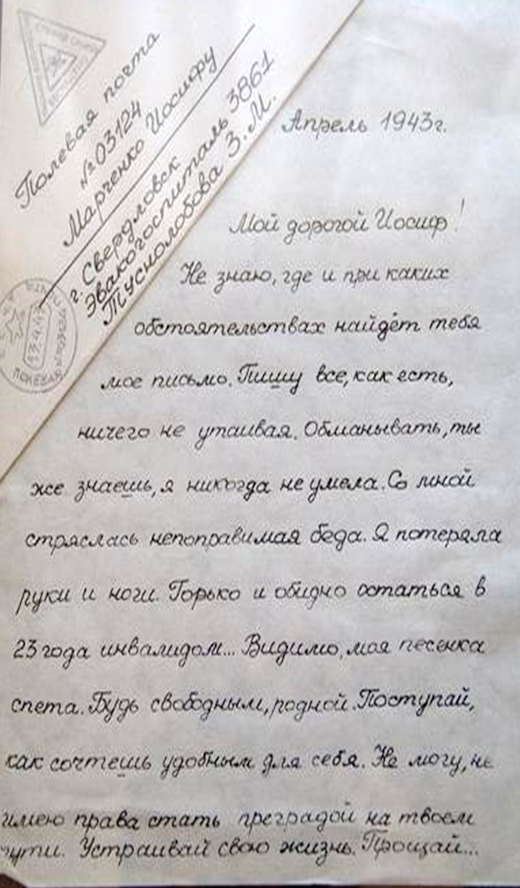 Полевая почта
№03124
Марченко Иосифу
г. Свердловск
Эвакогоспиталь 3861
Туснолобова З.М.
Апрель 1943г.
Мой дорогой Иосиф!
Не знаю, где и при каких
обстоятельствах найдёт тебя
мое письмо. Пишу все, как есть,
ничего не утаивая. Обманывать, ты
же знаешь, я никогда не умела. Со мной
стряслась непоправимая беда. Я потеряла
руки и ноги. Горько и обидно остаться в
23 года инвалидом... Видимо, моя песенка
спета. Будь свободным, родной. Поступай,
как сочтешь удобным для себя. Не могу, не
имею права стать преградой на твоем
пути. Устраивай свою жизнь. Прощай...
ПОЛЕВАЯ